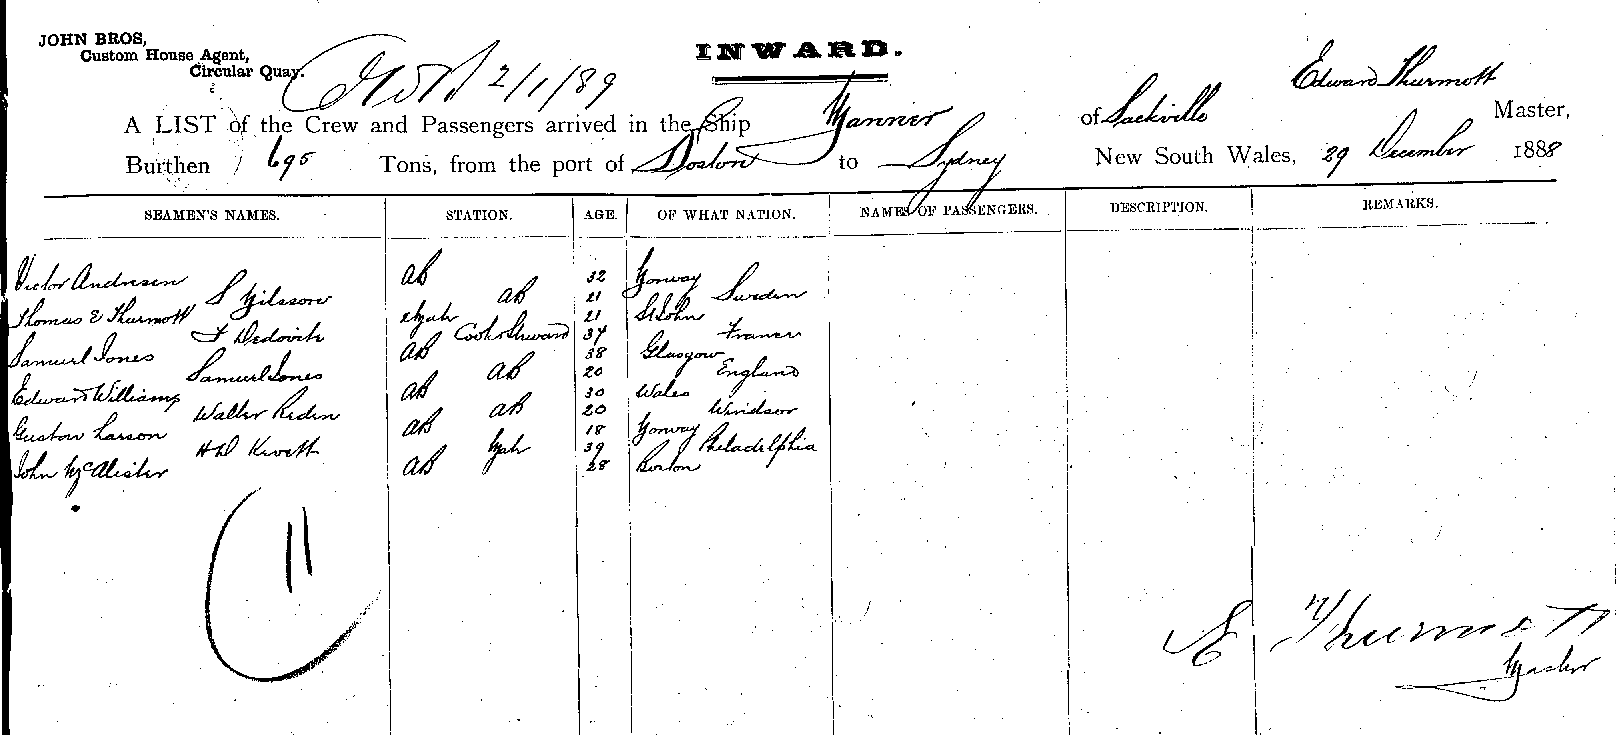 JOHN BROS,
Custom House Agent,
Circular Quay.
2/1/89
INWARD.
Edward Thurmott
A LIST of the Crew and Passengers arrived in the Ship Yarrier of Sackville Master,
Burthen 695 Tons, from the port of Boston to Sydney New South Wales, 29 December 1888
SEAMEN'S NAMES. STATION. AGE. OF WHAT NATION. NAMES OF PASSENGERS. DESCRIPTION. REMARKS.
Victor Andresen AB 32 Norway
S Nilsson AB 21 Sweden
Thomas E Thurmott 21 St John
F Dedovich Cook & Steward 34 France
Samuel Jones AB 38 Glasgow
Samuel Jones AB 20 England
Edward Williams AB 30 Wales
Walter Reden AB 20 Windsor
Gustow Larson AB 18 Norway
H D Kevett Mate 39 Philadelphia
John McAlister AB 28 Boston
11
E Thurmott
Master